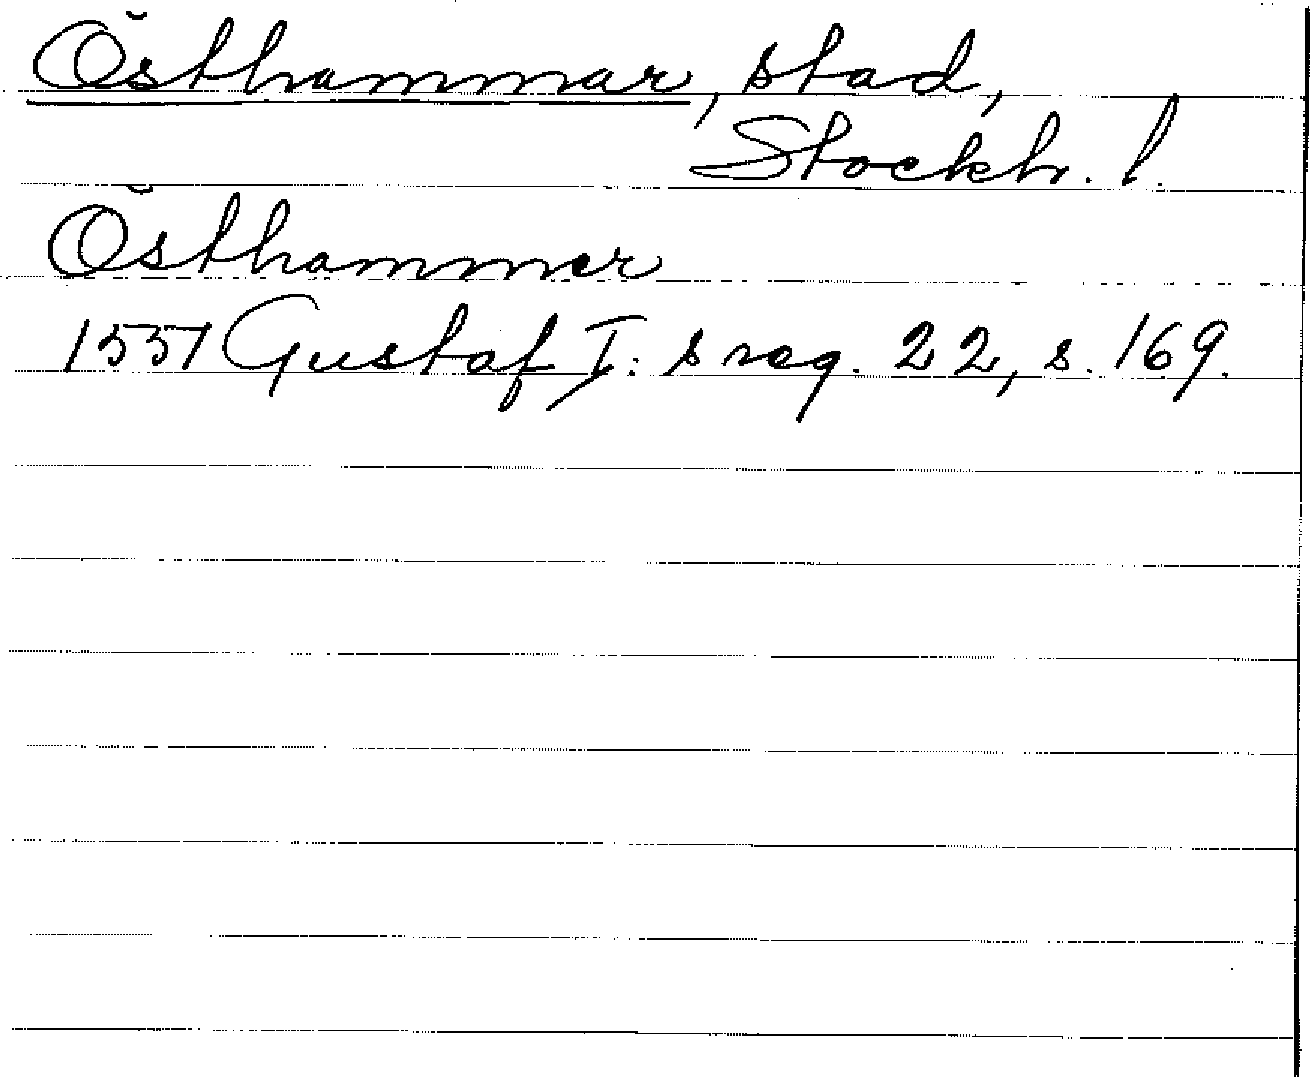 Östhammar, stad,
Stockh. l.
Östhammer
1551 Gustaf I:s reg. 22, s. 169.